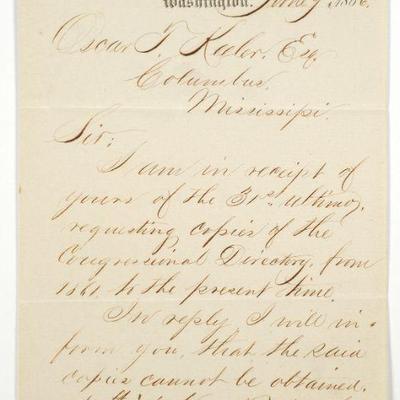 Washington, June 7, 1866.
Oscar T. Keeler, Esq
Columbus,
Mississippi.
Sir;
I am in receipt of
yours of the 31st ultimo,
requesting copies of the
Congressional Directory, from
1861, to the present time.
In reply, I will in-
form you, that the said
copies cannot be obtained,
at this